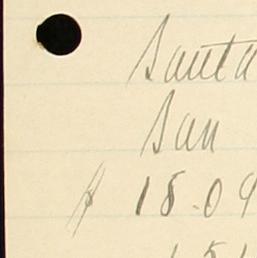 Santa
San
$ 18.09
1 5 1